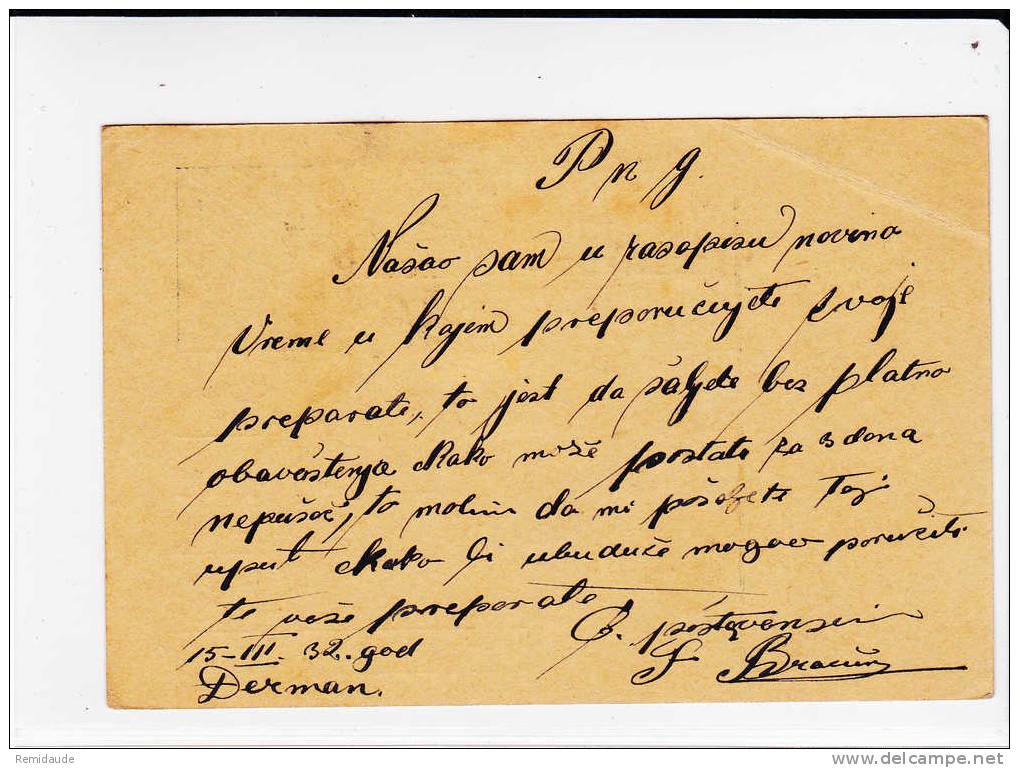 P n g.
Našao sam u časopisu novina
Vreme u kojim preporučujete svoje
preparate, to jest da šaljete bez platno
obaveštenja kako može postati za 3 dana
nepušač, to molim da mi pošaljete taj
uput kako bi ubuduće mogao poručiti
te vaše preparate
S. poštovanjem
15-III. 32. god
Derman.
Remidaude
www.delcampe.net